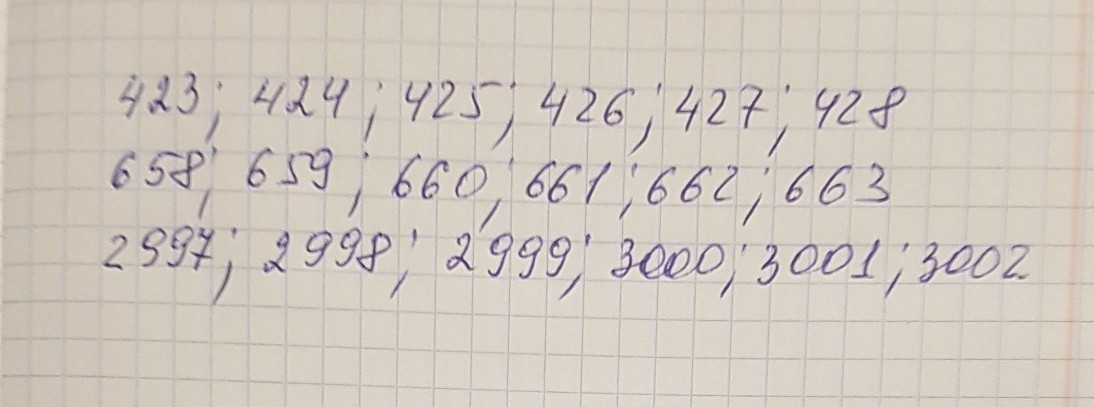 423; 424; 425; 426; 427; 428
658; 659; 660; 661; 662; 663
2997; 2998; 2999; 3000; 3001; 3002